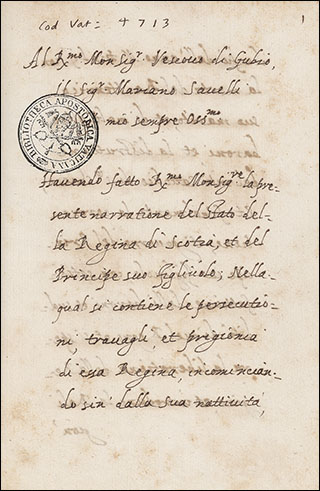 Cod Vat = 4713
1
Al R.mo Monsig.r Vescovo di Gubio,
Il Sig.r Mariano Savelli
mio sempre Oss.mo
BIBLIOTHECA APOSTOLICA VATICANA
Havendo fatto R.mo Monsig.re la pre-
sente narratione del stato del-
la Regina di Scotza, et del
Principe suo figliuolo; Nella
qual si contiene le persecutio-
ni, travagli et prigionia
di essa Regina, incomincian-
do sin' dalla sua nattività,